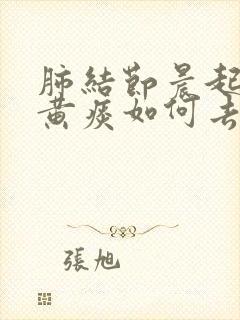 肺結節晨起
黃痰如何去
張旭